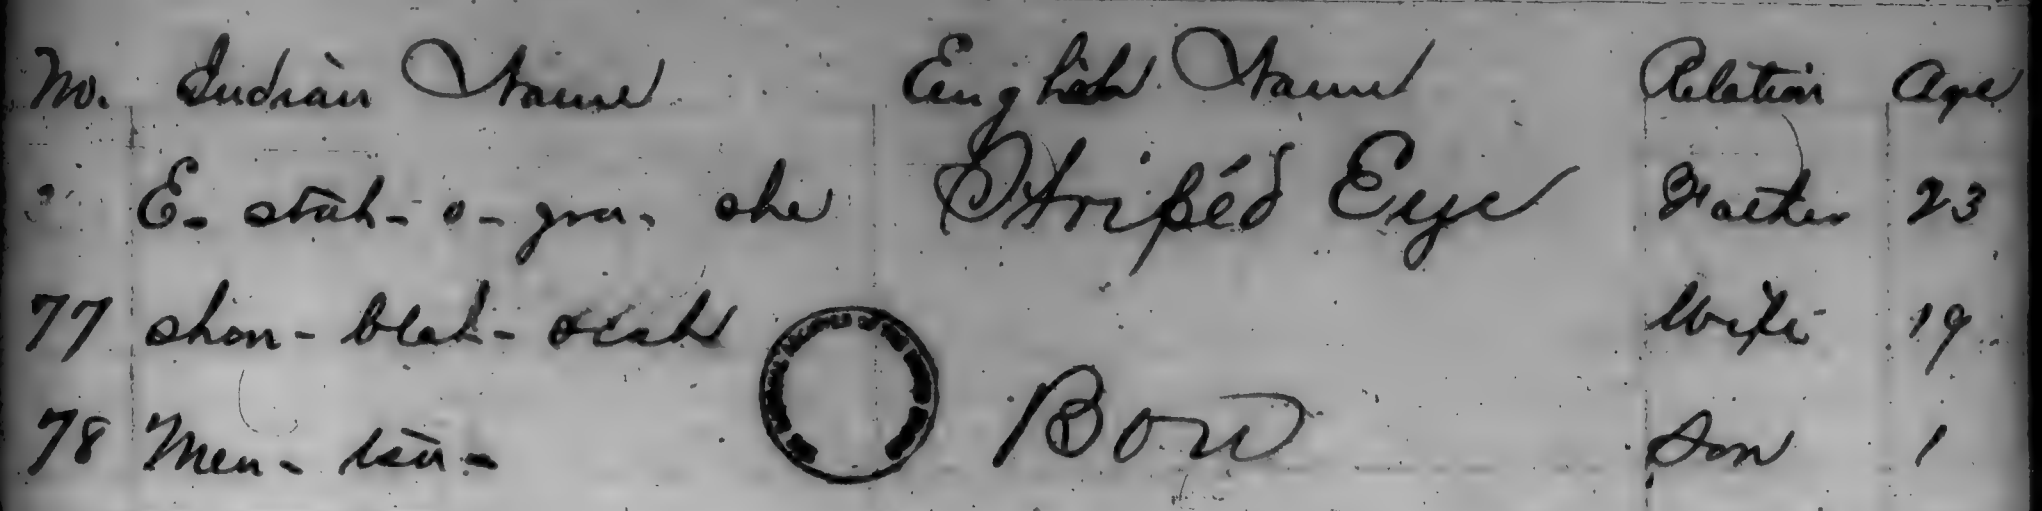 No. Indian Name English Name Relation Age
E- stah- o- gra- she Striped Eye Father 23
77 shon- blah- Wife 19
78 Men- tsa- Bow Son 1